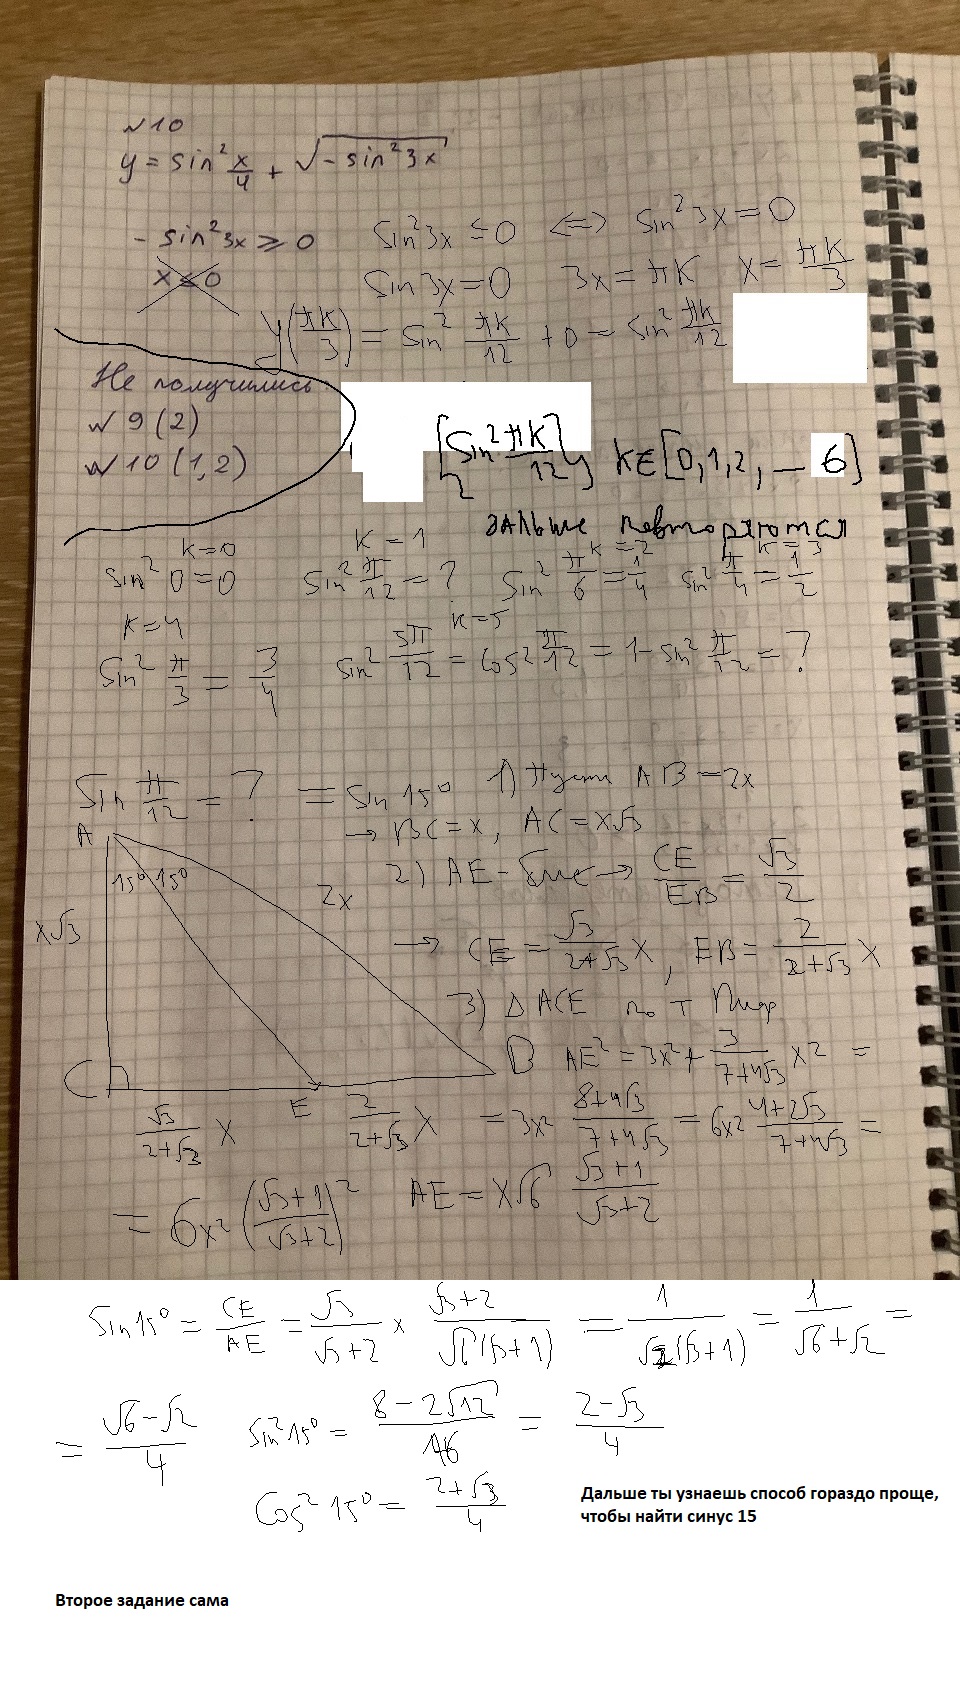 №10
y = sin² x/4 + √(-sin² 3x)
- sin² 3x ⩾ 0 sin² 3x ≤ 0 <=> sin² 3x = 0
x ≤ 0 sin 3x = 0 3x = πk x = πk/3
y(πk/3) = sin² πk/12 + 0 = sin² πk/12
Не получились
№ 9 (2)
№ 10 (1,2)
{sin² πk/12} k∈[0,1,2, – 6]
дальше повторяются
k=0 k = 1 k = 2 k = 3
sin² 0 = 0 sin² π/12 = ? sin² π/6 = 1/4 sin² π/4 = 1/2
k=4 k=5
sin² π/3 = 3/4 sin² 5π/12 = cos² π/12 = 1 - sin² π/12 = ?
sin π/12 = ? = sin 15° 1) Пусть AB = 2x
→ BC = x, AC = x√3
2) AE - бис → CE/EB = √3/2
→ CE = √3/(2+√3) x, EB = 2/(2+√3) x
3) △ ACE по т Пиф
AE² = 3x² + 3/(7+4√3) x² =
= 3x² (8+4√3)/(7+4√3) = 6x² (4+2√3)/(7+4√3) =
= 6x² ((√3+1)/(√3+2))² AE = x√6 (√3+1)/(√3+2)
A
15° 15°
2x
x√3
C E B
√3/(2+√3) x 2/(2+√3) x
sin 15° = CE/AE = √3/(√3+2) × (√3+2)/(√6(√3+1)) = 1/(√2(√3+1)) = 1/(√6+√2) =
= (√6-√2)/4 sin² 15° = (8-2√12)/16 = (2-√3)/4
cos² 15° = (2+√3)/4
Дальше ты узнаешь способ гораздо проще,
чтобы найти синус 15
Второе задание сама